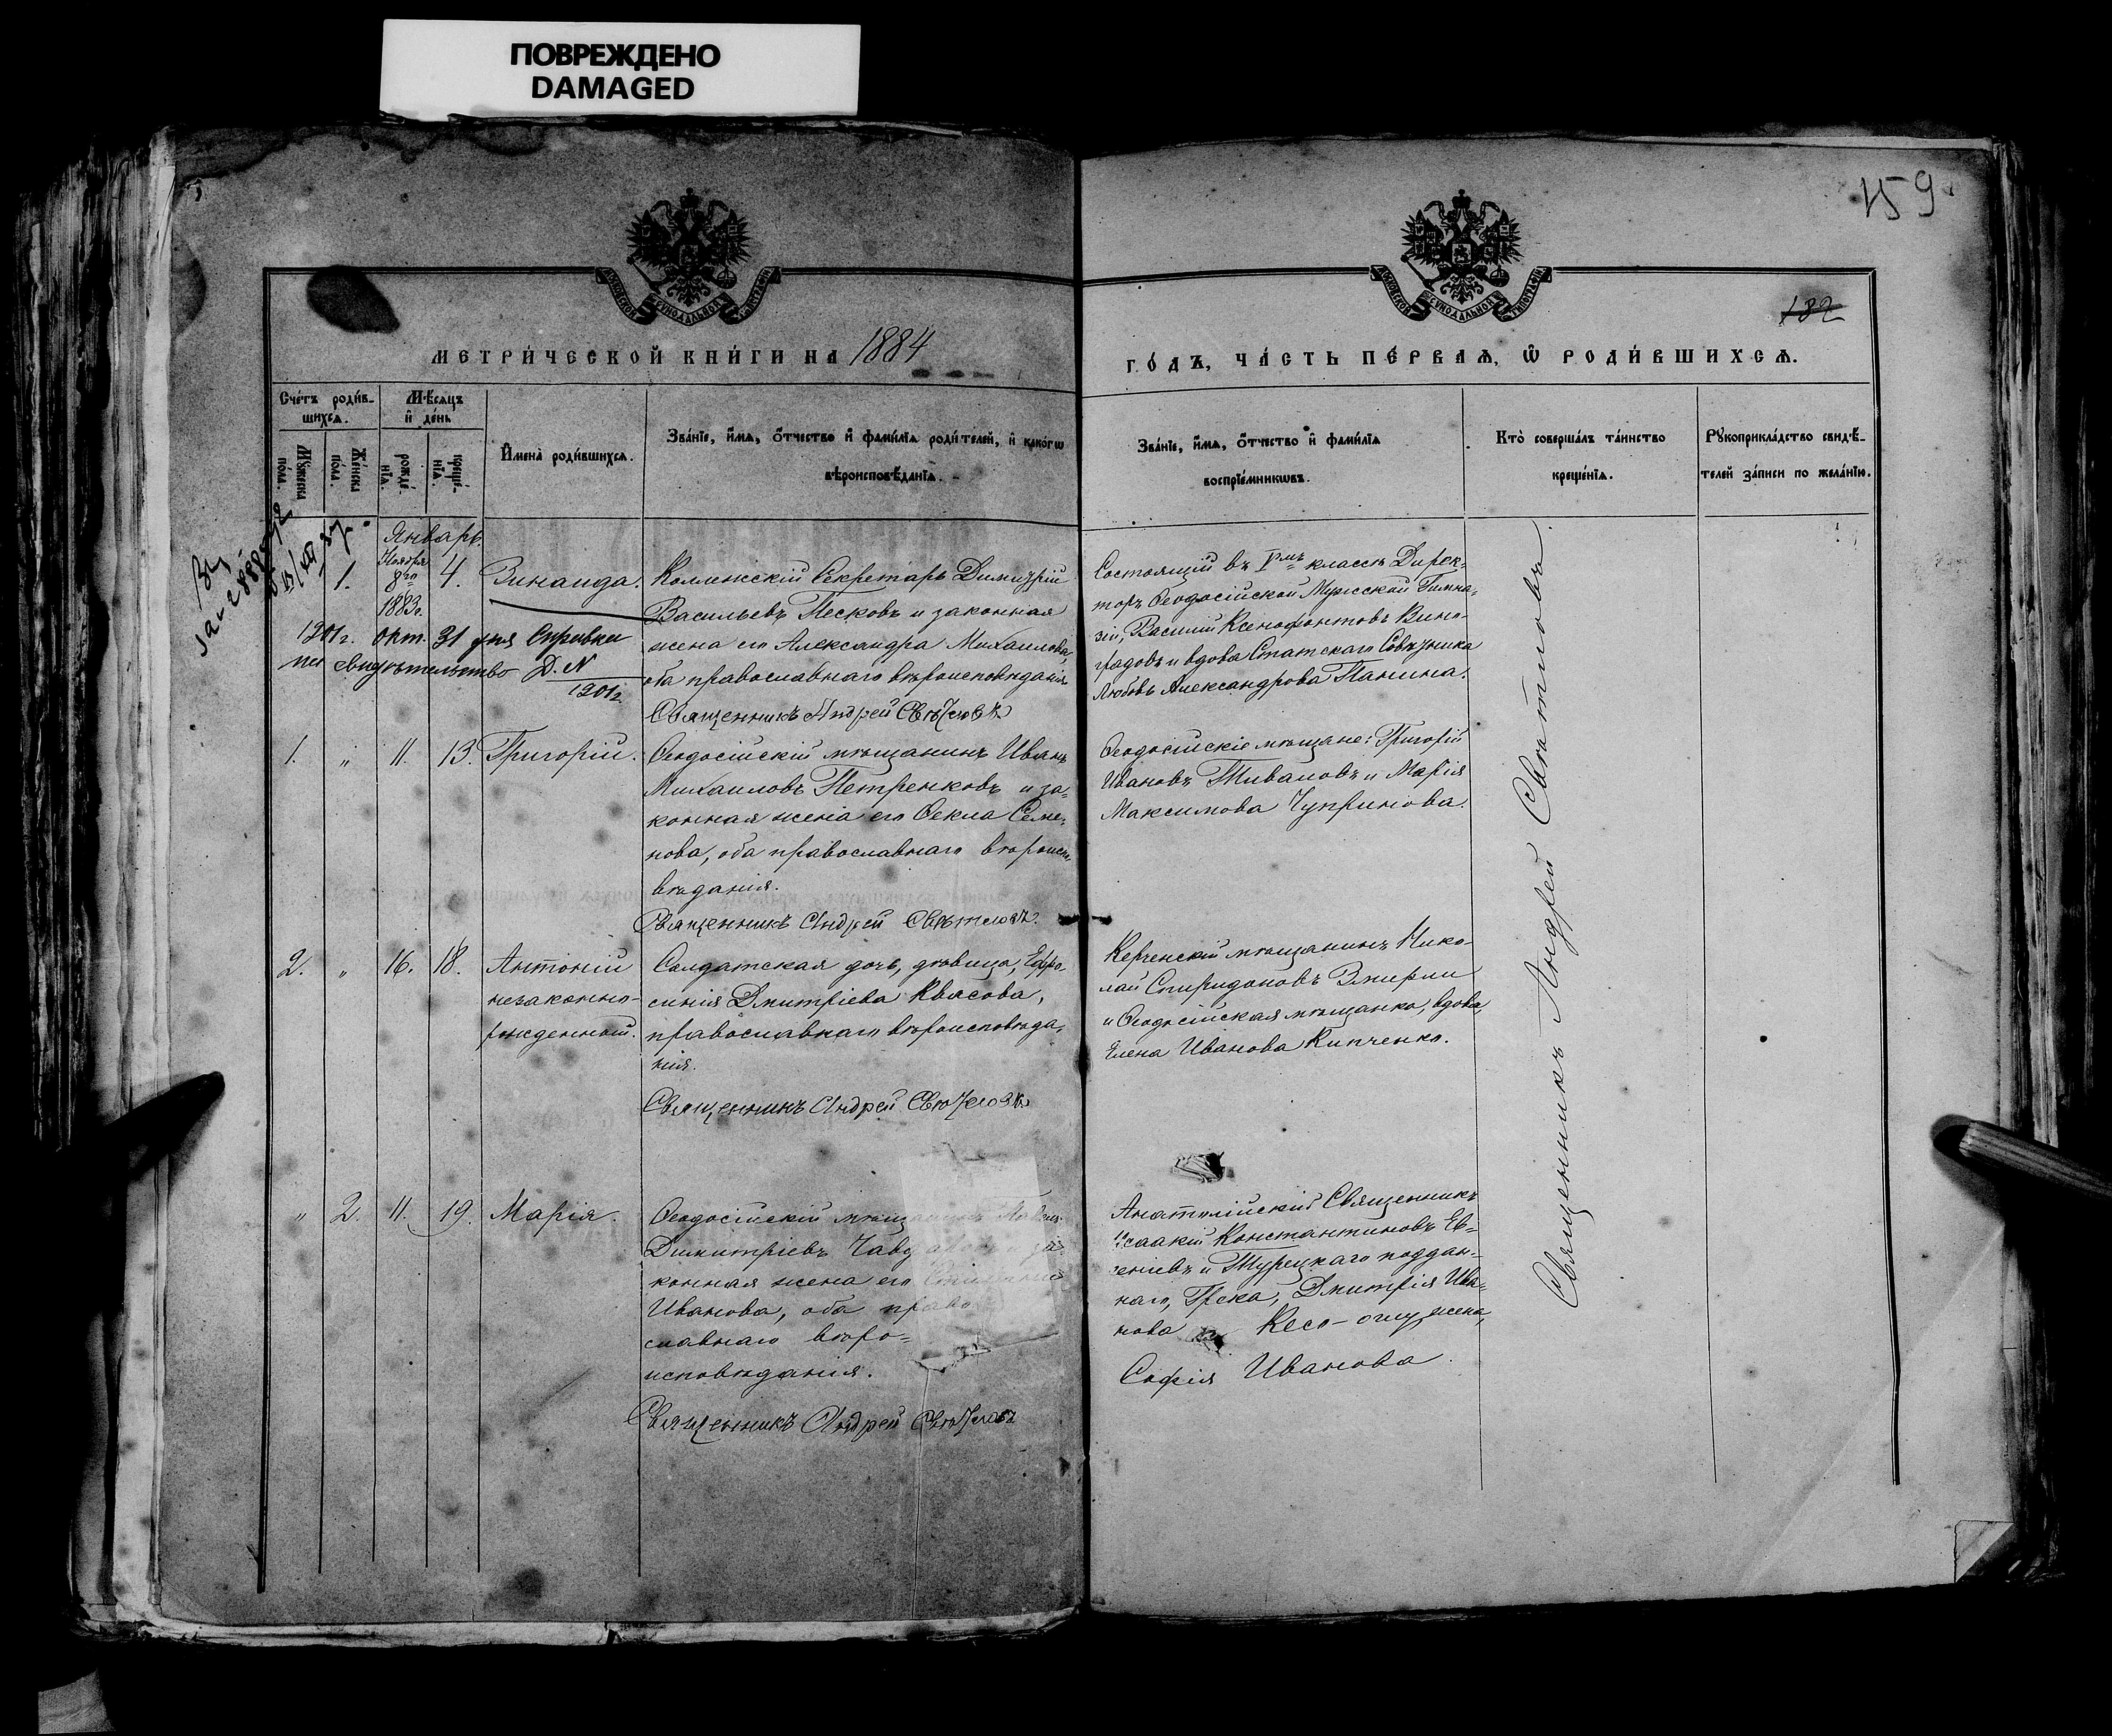 ПОВРЕЖДЕНО
DAMAGED
159
182
МЕТРИ́ЧЕСКОЙ КНИ́ГИ НА 1884
ГО́ДЪ, ЧА́СТЬ ПЕ́РВАѦ, Ѡ҆ РОДИ́ВШИХСѦ.
Сче́тъ роди́в-
шихсѧ.
Мꙋжеска по́ла.
Же́нска по́ла.
Мѣ́сѧцъ
и҆ де́нь
рожде́-
нїѧ.
креще́-
нїѧ.
И҆мена̀ роди́вшихсѧ.
Зва́нїе, и҆́мѧ, ѻ҆́тчество и҆ фами́лїѧ роди́телей, и҆ како́гѡ
вѣроисповѣ́данїѧ.
Зва́нїе, и҆́мѧ, ѻ҆́тчество и҆ фами́лїѧ
воспрїе́мникѡвъ.
Кто̀ соверша́лъ та́инство
креще́нїѧ.
Рꙋкоприкла́дство свидѣ́-
телей за́писи по жела́нїю.
Январь.
1.
Ноября
8го
1883г.
4.
Зинаида.
Коллежскій Секретарь Димитрій
Васильевъ Песковъ и законная
жена его Александра Михаилова,
оба православнаго вѣроисповѣданія
Священникъ Андрей Свѣтловъ
1901г. Окт. 31 дня Справка
свидѣтельство Д. N
1901г.
Состоящій въ Vмъ классѣ Дирек-
торъ Ѳеодосійской Мужской Гимна-
зіи, Василій Ксенофонтовъ Вино-
градовъ и вдова Статскаго Совѣтника
Любовь Александрова Панина.
1. " 11. 13. Григорій.
Ѳеодосійскій мѣщанинъ Иванъ
Михаиловъ Петренковъ и за-
конная жена его Ѳекла Семе-
нова, оба православнаго вѣроиспо-
вѣданія.
Священникъ Андрей Свѣтловъ.
Ѳеодосійскіе мѣщане: Григорій
Ивановъ Тивановъ и Марія
Максимова Чупринова.
2. " 16. 18. Антоній
незаконно-
рожденный.
Солдатская дочь, дѣвица, Ефро-
синія Дмитріева Квасова,
православнаго вѣроисповѣда-
нія.
Священникъ Андрей Свѣтловъ
Керченскій мѣщанинъ Нико-
лай Спиридоновъ Эмирли
и Ѳеодосійская мѣщанка, вдова,
Елена Иванова Кипченко.
" 2. 11. 19. Марія.
Ѳеодосійскій мѣщанинъ Павелъ
Димитріевъ и за-
конная жена его
Иванова, оба право-
славнаго вѣро-
исповѣданія.
Священникъ Андрей Свѣтловъ
Анатолійскій Священникъ
Исаакій Константиновъ Ев-
геніевъ и Турецкаго поддан-
наго, Грека, Дмитрія Ива-
нова Кесе-оглу жена,
Софія Иванова.
Священникъ Андрей Свѣтловъ.